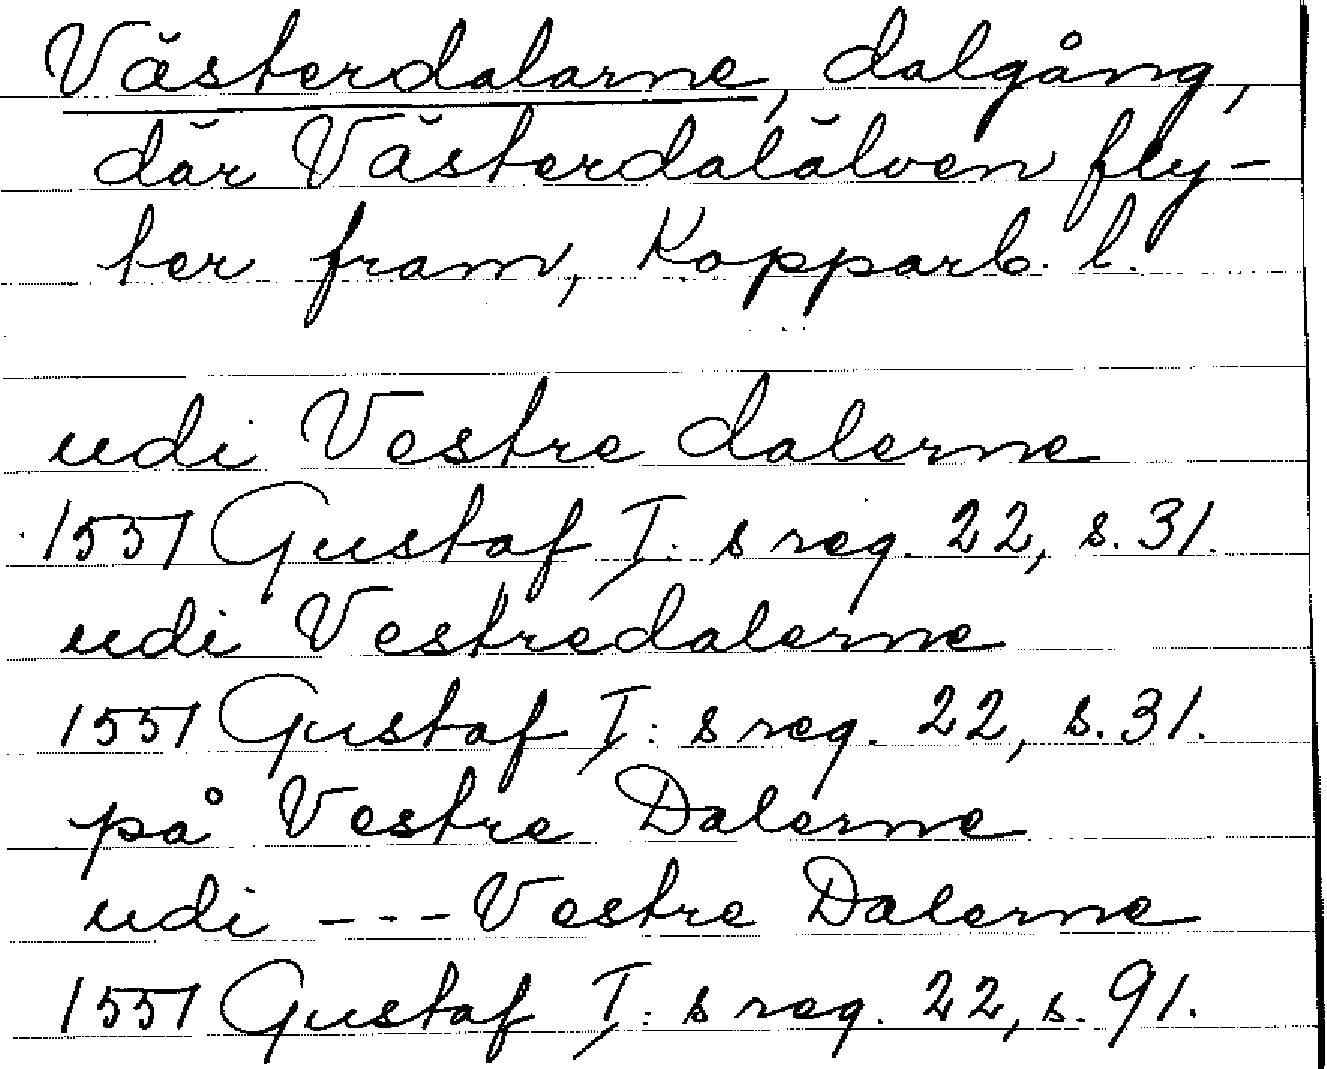 Västerdalarne, dalgång,
där Västerdalälven fly-
ter fram, Kopparb. l.
udi Vestre dalerne
1551 Gustaf I: s reg. 22, s. 31.
udi Vestredalerne
1551 Gustaf I: s reg. 22, s. 31.
på Vestre Dalerne
udi --- Vestre Dalerne
1551 Gustaf I: s reg. 22, s. 91.